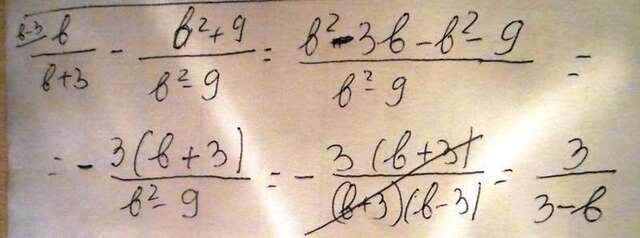 b-3 b/b+3 - b²+9/b²-9 = b²-3b-b²-9/b²-9 =
= - 3(b+3)/b²-9 = - 3(b+3)/(b+3)(b-3) = 3/3-b